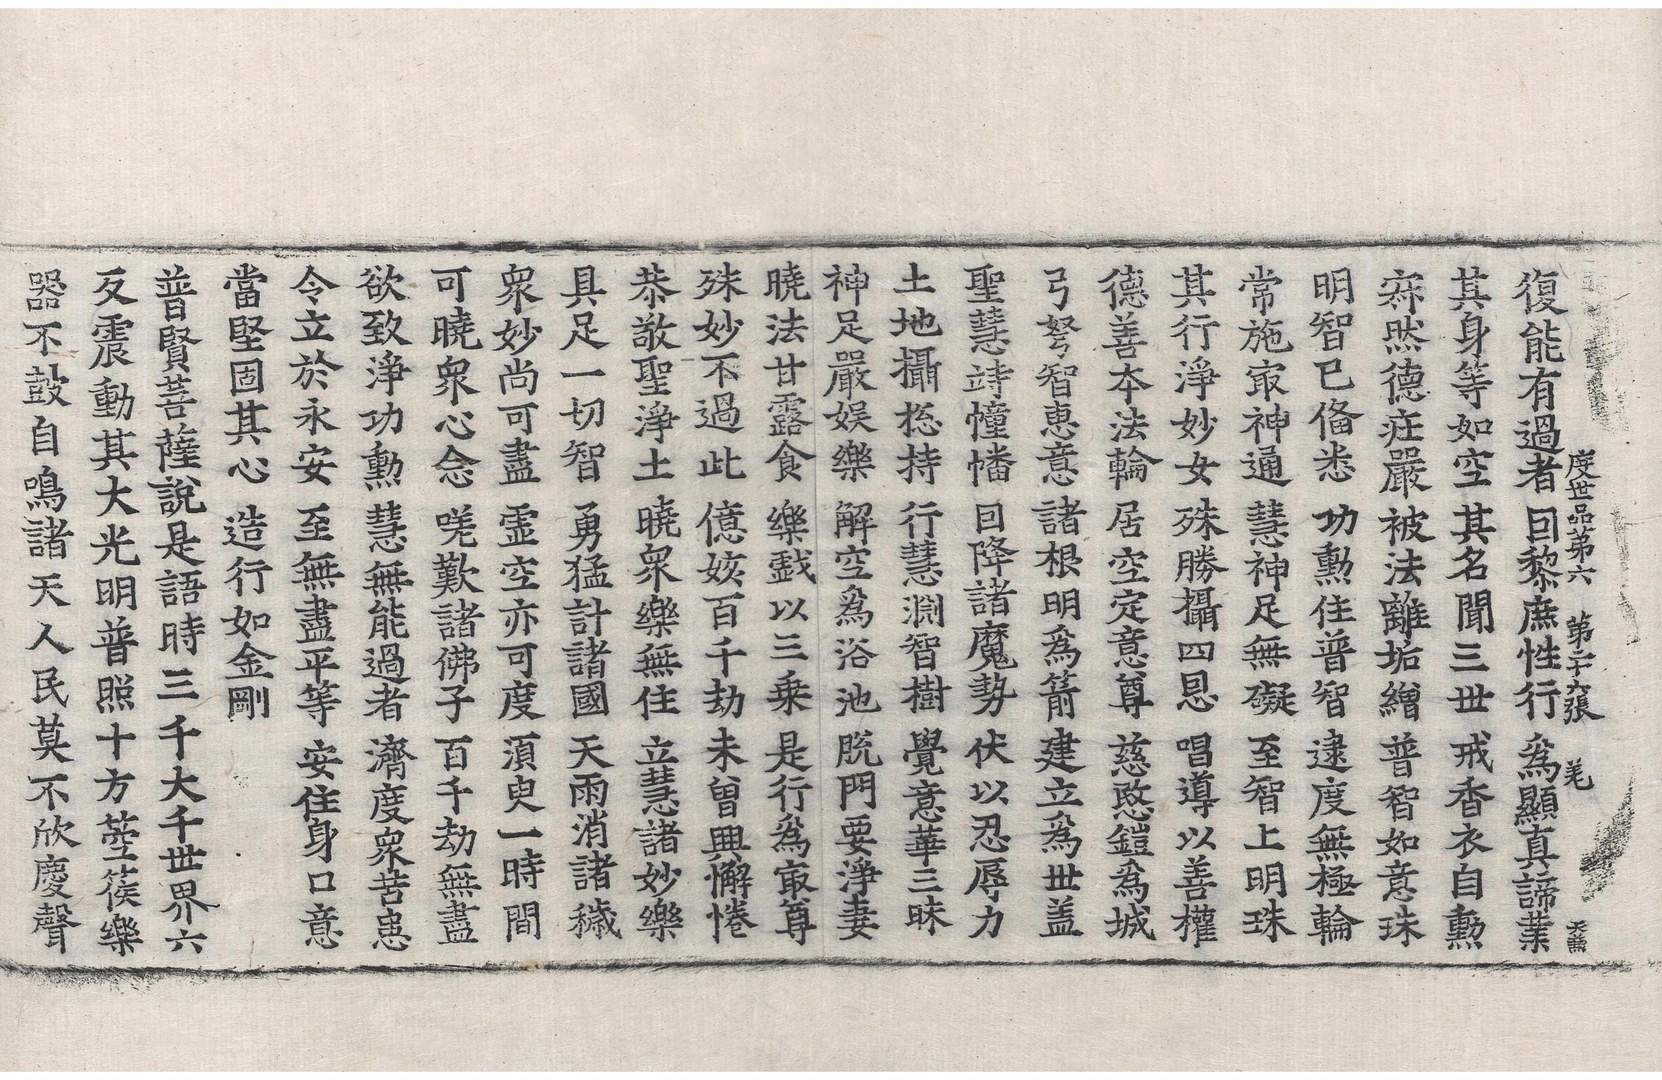 度世品第六 第二十九張 羌 天無
復能有過者 回黎庶性行 爲顯真諦業
其身等如空 其名聞三世 戒香衣自勳
寂然德莊嚴 被法離垢繒 普智如意珠
明智已俻悉 功勳住普智 逮度無極輪
常施㝡神通 慧神足無礙 至智上明珠
其行淨妙女 殊勝攝四恩 唱導以善權
德善本法輪 居空定意尊 慈愍鎧為城
弓弩智惠意 諸根明爲箭 建立爲世盖
聖慧詩幢幡 回降諸魔勢 伏以忍辱力
土地攝捴持 行慧淵智樹 覺意華三昧
神足嚴娱樂 解空爲浴池 脫門要淨妻
曉法甘露食 樂戲以三乗 是行爲㝡尊
殊妙不過此 億姟百千劫 未曾興懈惓
恭敬聖淨土 曉衆樂無住 立慧諸妙樂
具足一切智 勇猛計諸國 天雨消諸穢
衆妙尚可盡 虛空亦可度 須臾一時間
可曉衆心念 咲歎諸佛子 百千劫無盡
欲致淨功勳 慧無能過者 濟度衆苦患
令立於永安 至無盡平等 安住身口意
當堅固其心 造行如金剛
普賢菩薩說是語時三千大千世界六
反震動其大光明普照十方箜篌樂
器不鼓自鳴諸天人民莫不欣慶聲